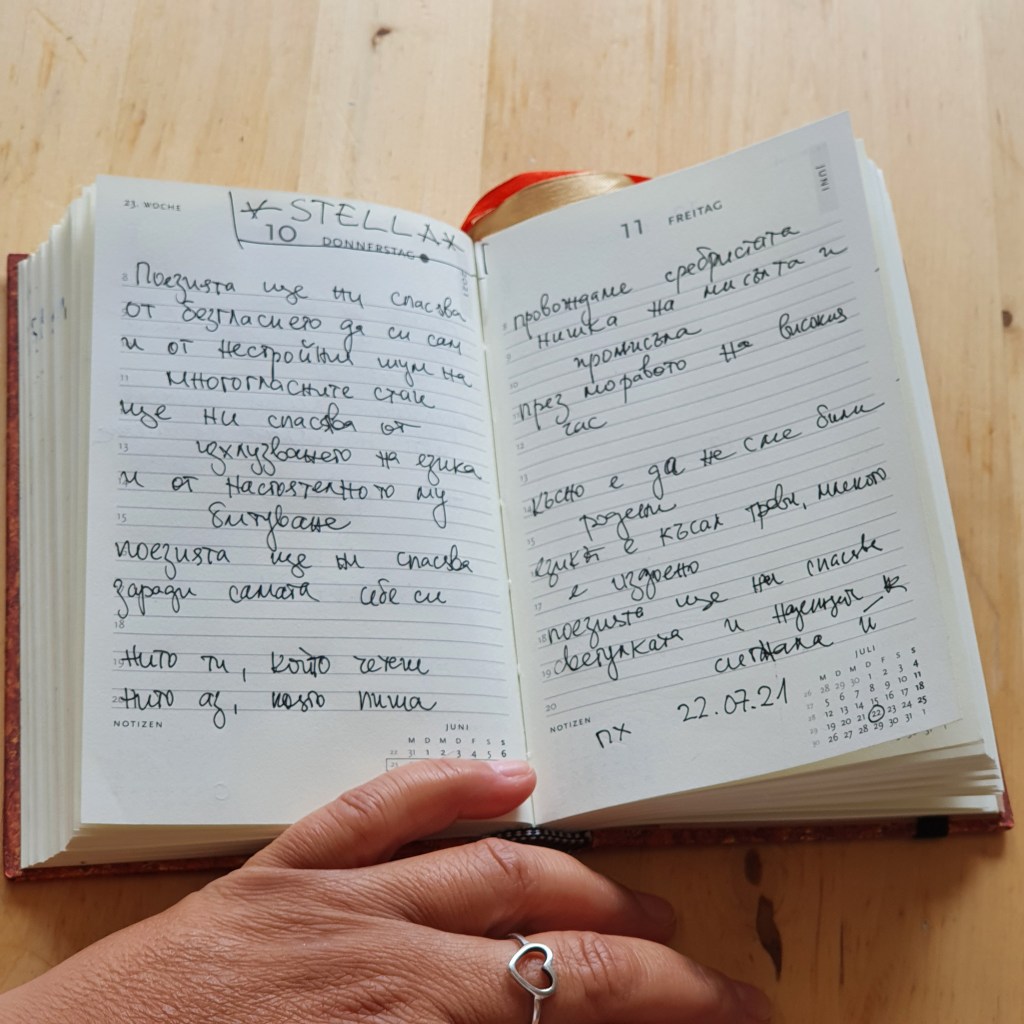 23. WOCHE
STELLA
10 DONNERSTAG
8 Поезията ще ни спасява
от безгласието да си сам
и от нестройния шум на
11 многогласните стаи
ще ни спасява от
13 изхлузването на езика
и от настоятелното му
15 битуване
поезията ще ни спасява
заради самата себе си
18
19 нито ти, който четеш
20 нито аз, която пиша
NOTIZEN
JUNI
M D M D F S S
22 31 1 2 3 4 5 6
JUNI
11 FREITAG
8 провождаме сребристата
9 нишка на мисълта и
10 промисъла
през моравото на високия
12 час
13
14 късно е да не сме били
15 родени
езикът е късал треви, млякото
17 е издоено
18 поезията ще ни спасява
19 светулката и
20 сигнала ѝ
NOTIZEN
пх 22.07.21
JULI
M D M D F S S
26 28 29 30 1 2 3 4
5 6 7 8 9 10 11
28 12 13 14 15 16 17 18
29 19 20 21 22 23 24 25
30 26 27 28 29 30 31 1